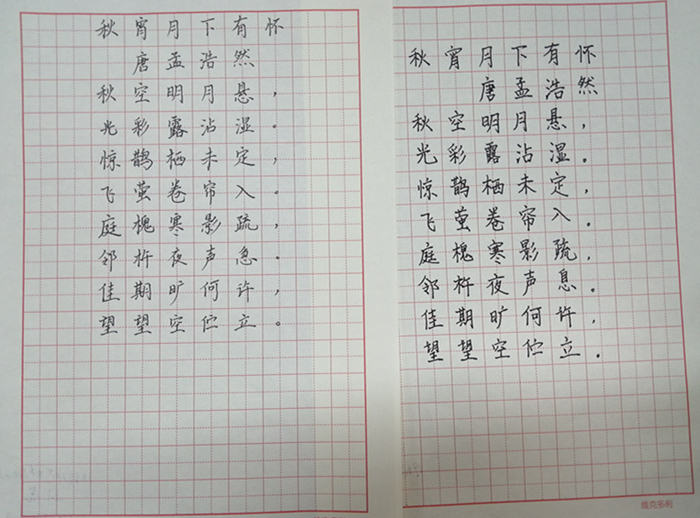 秋宵月下有怀
唐孟浩然
秋空明月悬，
光彩露沾湿。
惊鹊栖未定，
飞萤卷帘入。
庭槐寒影疏，
邻杵夜声急。
佳期旷何许，
望望空伫立。
秋宵月下有怀
唐孟浩然
秋空明月悬，
光彩露沾湿。
惊鹊栖未定，
飞萤卷帘入。
庭槐寒影疏，
邻杵夜声息。
佳期旷何许，
望望空伫立。
维克多利